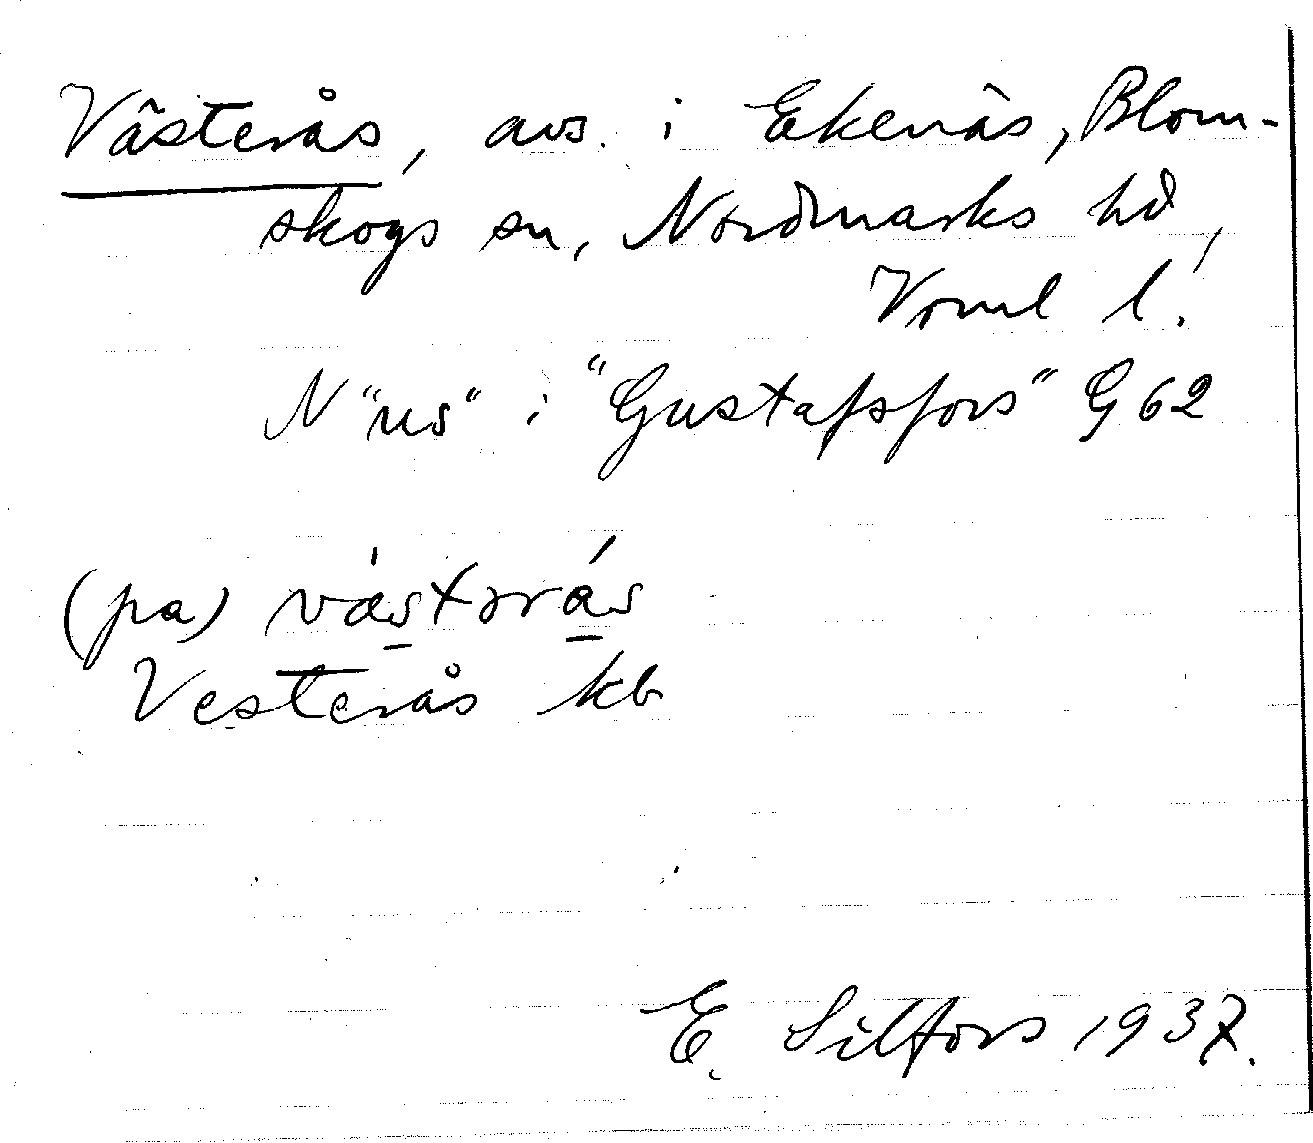 Västerås, avs. i Ekenäs, Blom-
skogs sn, Nordmarks hd,
Vrml l.
N "us" i "Gustafsfors" G 62
(pa) västərås
Vesterås kb
E. Silfors 1937.